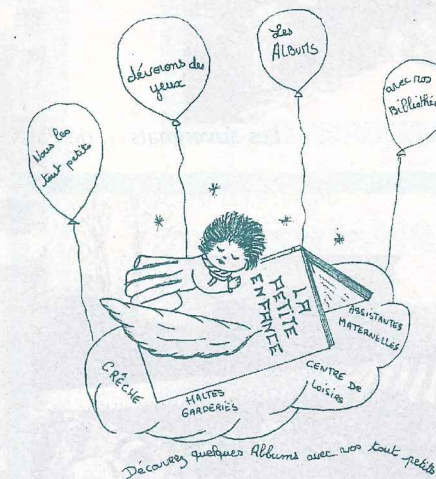 Nous les
tout petits
dévorons des
yeux
Les
ALBUMS
avec vos
Bibliothé
LA
PETITE
ENFANCE
CRÊCHE
HALTES
GARDERIES
CENTRE DE
LOISIRS
ASSISTANTES
MATERNELLES
Découvrez quelques Albums avec vos tout-petits